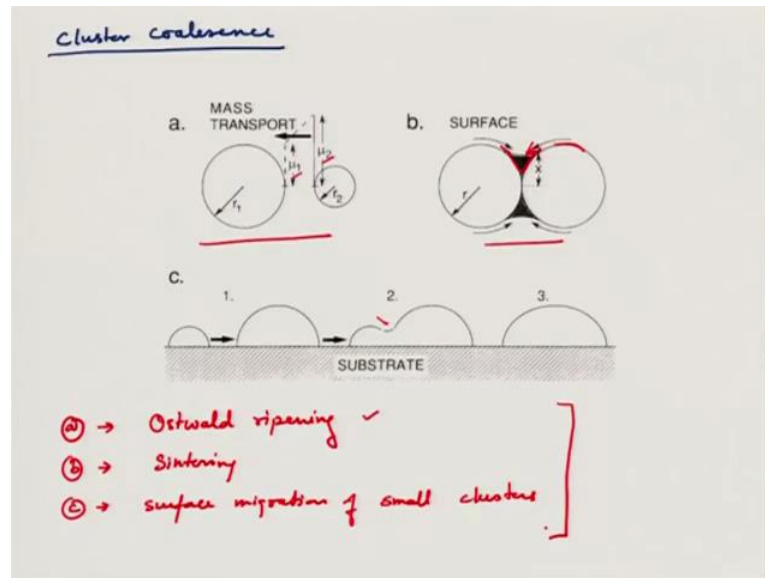 Cluster Coalesence
a. MASS
TRANSPORT
μ1
μ2
r1
r2
b. SURFACE
r
x
c.
1.
2.
3.
SUBSTRATE
ⓐ → Ostwald ripening ✓
ⓑ → Sintering
ⓒ → surface migration of small clusters.